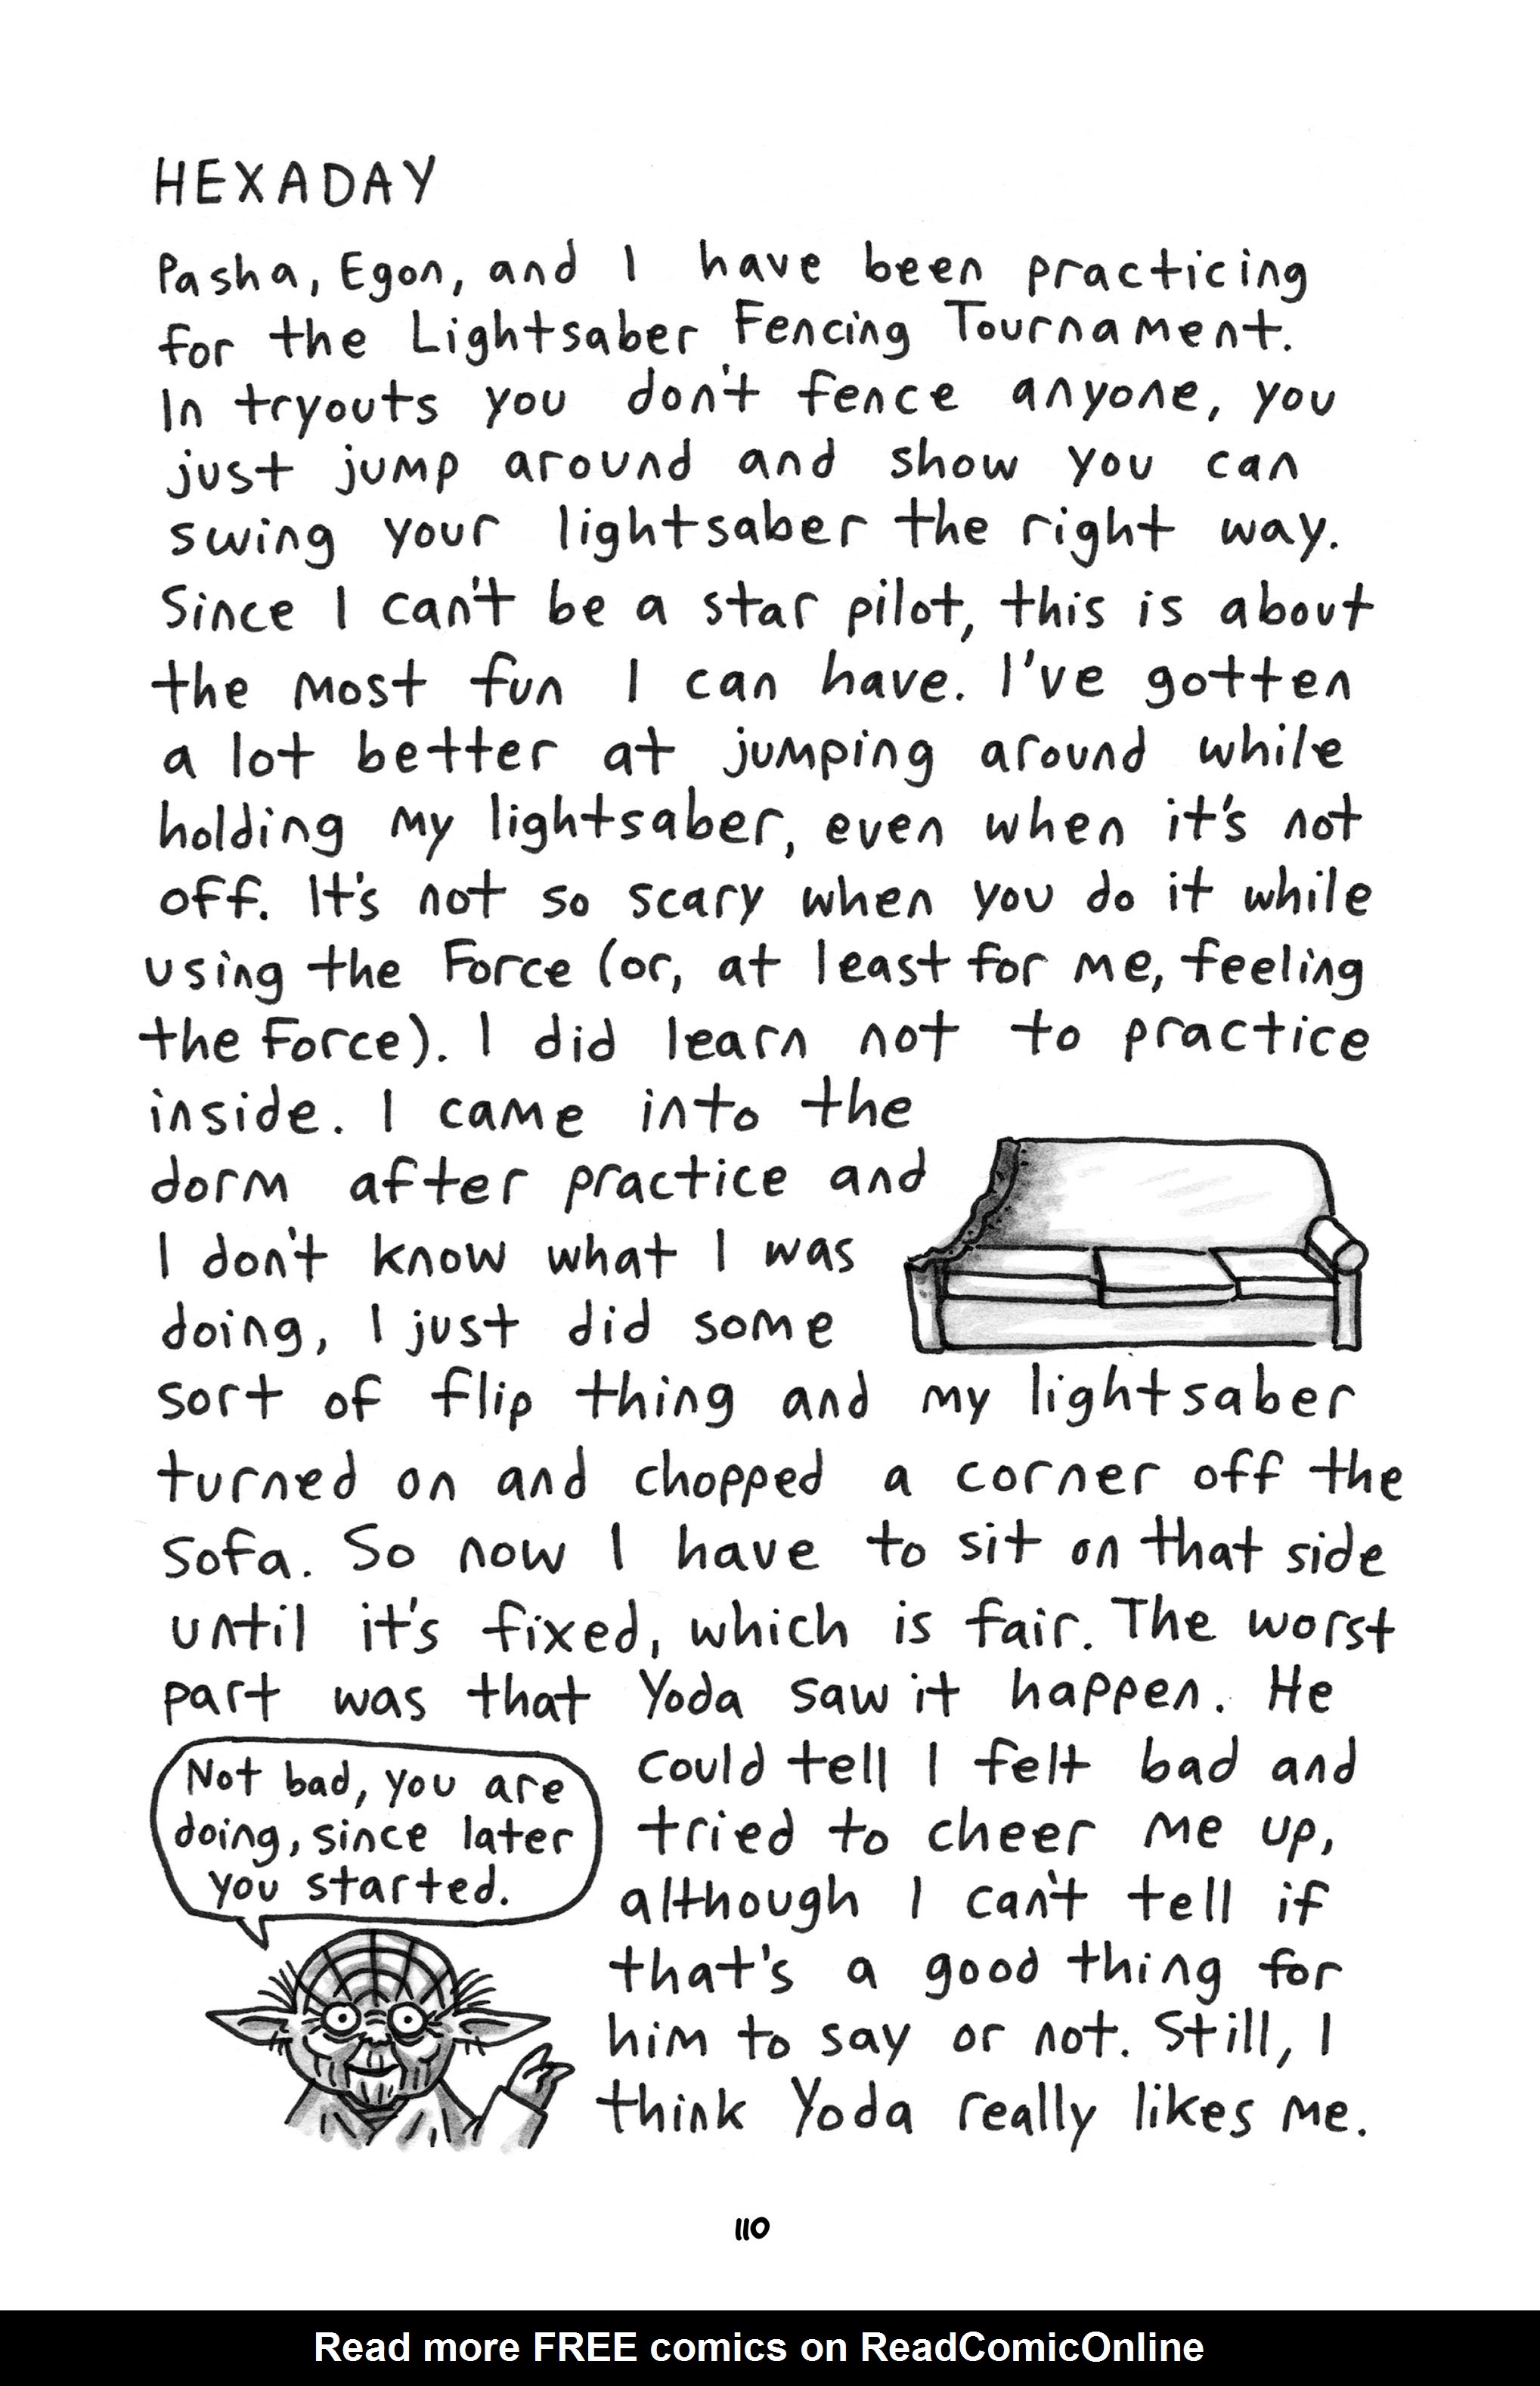 HEXADAY
Pasha, Egon, and I have been practicing
for the Lightsaber Fencing Tournament.
In tryouts you don't fence anyone, you
just jump around and show you can
swing your lightsaber the right way.
Since I can't be a star pilot, this is about
the most fun I can have. I've gotten
a lot better at jumping around while
holding my lightsaber, even when it's not
off. It's not so scary when you do it while
using the Force (or, at least for me, feeling
the Force). I did learn not to practice
inside. I came into the
dorm after practice and
I don't know what I was
doing, I just did some
sort of flip thing and my lightsaber
turned on and chopped a corner off the
sofa. So now I have to sit on that side
until it's fixed, which is fair. The worst
part was that Yoda saw it happen. He
could tell I felt bad and
tried to cheer me up,
although I can't tell if
that's a good thing for
him to say or not. Still, I
think Yoda really likes me.
Not bad, you are
doing, since later
you started.
110
Read more FREE comics on ReadComicOnline